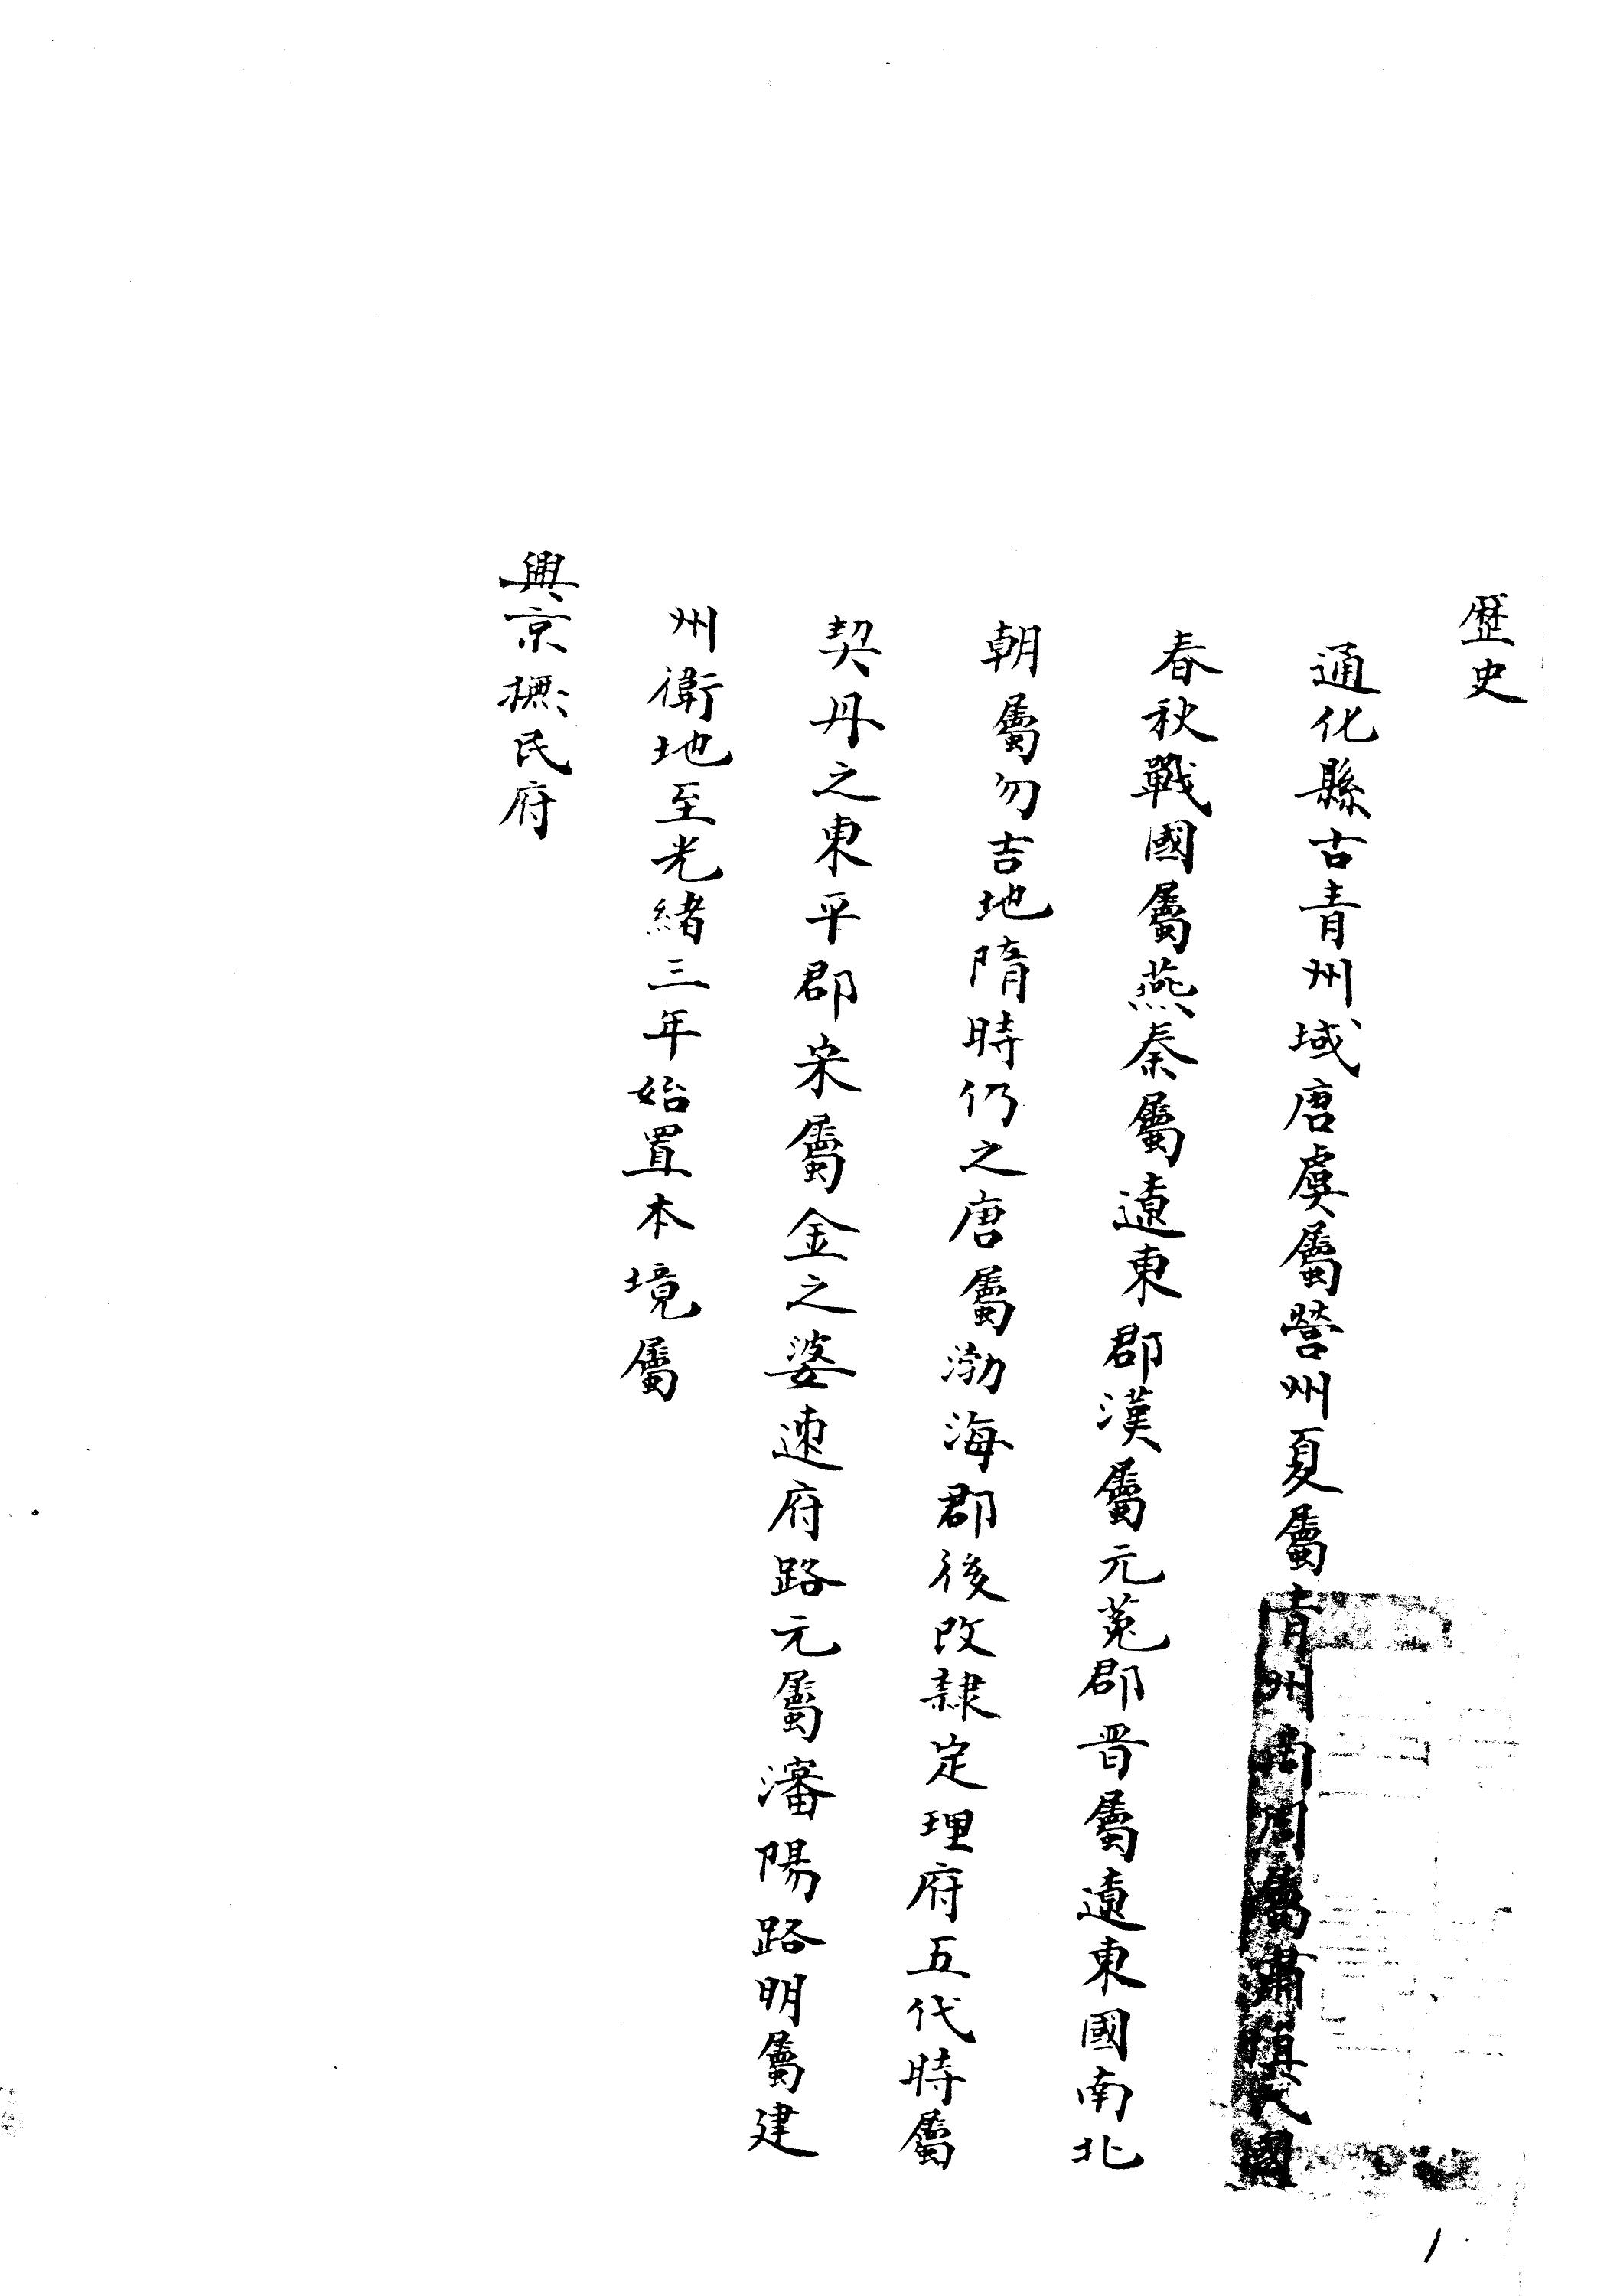 歷史
通化縣古青州域唐虞屬營州夏屬青州商周屬肅慎氏國
春秋戰國屬燕秦屬遼東郡漢屬元菟郡晋屬遼東國南北
朝屬勿吉地隋時仍之唐屬渤海郡後改隸定理府五代時屬
契丹之東平郡宋屬金之婆速府路元屬瀋陽路明屬建
州衛地至光緒三年始置本境屬
興京撫民府
1